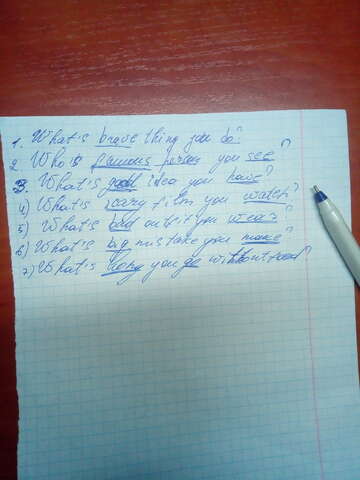 1. What is brave thing you do?
2. Who is famous person you see?
3. What is good idea you have?
4) What is scary film you watch?
5) What is bad outfit you wear?
6) What is big mistake you make?
7) What is long you go without food?